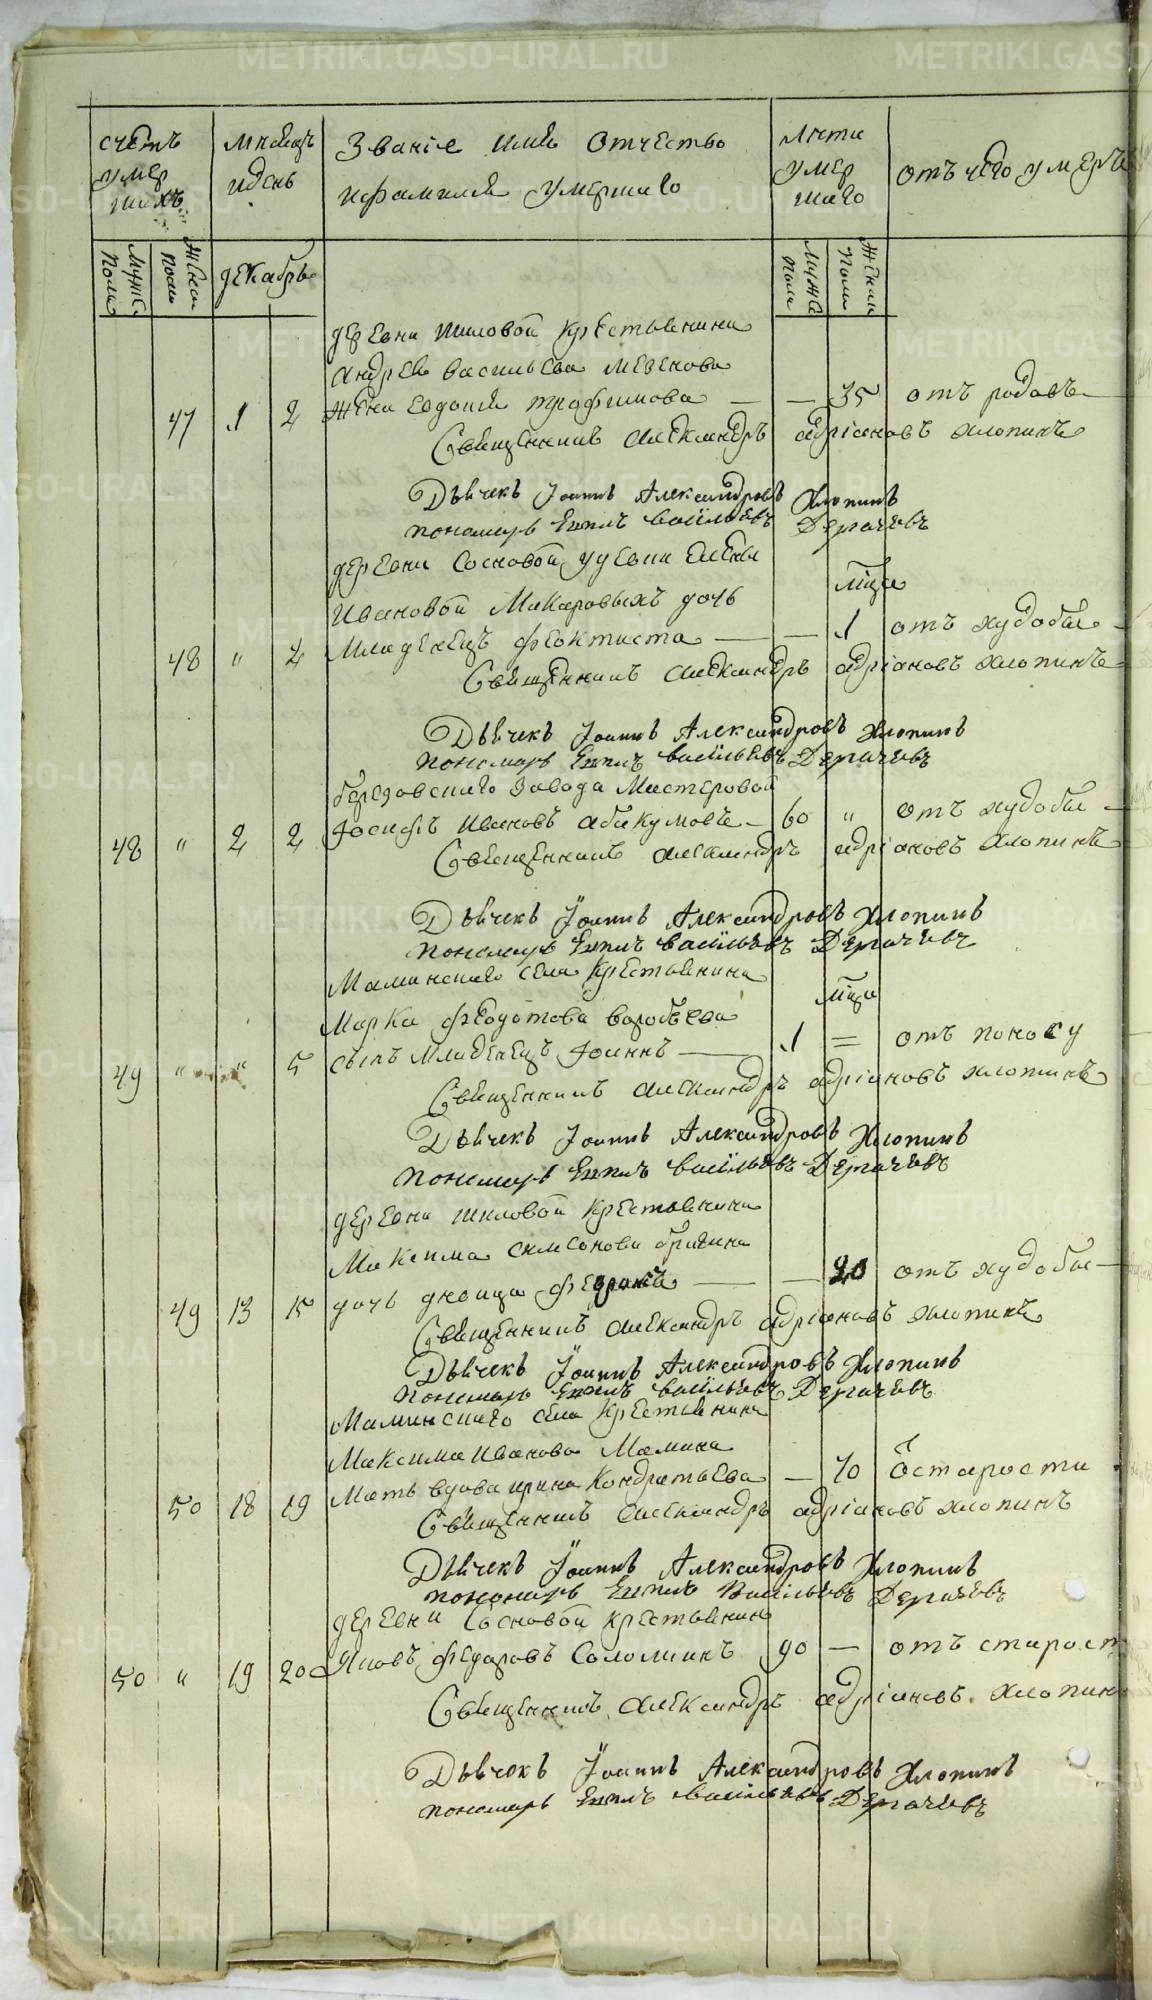 METRIKI.GASO-URAL.RU
счетъ умер шихъ
мѣсецъ идень
Званiе имя отчество
ифамилiя умершаго
лѣта умер шаго
отъ чего умеръ
Муже Пола
Женск Пола
декабрь
Муже Пола
Женск Пола
деревни шиловой крестьянина
андрея васильева мезенова
47 1 2 жена евдокия трофимова — — 35 отъ родовъ
Священникъ александръ адрiановъ хлопинъ
Дьячекъ Iоаннъ Александровъ Хлопинъ
пономарь васiльевъ Дергачевъ
деревни Сосновой удевки елены
мѣца
Ивановой Макаровыхъ дочь
48 " 2 Младенецъ феоктиста — — 1 отъ худобы
Священникъ александръ адрiановъ хлопинъ
Дьячекъ Iоаннъ Александровъ Хлопинъ
пономарь васiльевъ Дергачевъ
березовскаго завода Мастеровой
48 " 2 2 Iосифъ Ивановъ абакумовъ — 60 " отъ худобы
Священникъ александръ адрiановъ хлопинъ
Дьячекъ Iоаннъ Александровъ Хлопинъ
пономарь васiльевъ Дергачевъ
Маминскаго села крестьянина
мѣца
Марка федотова воробьева
49 " " 5 сынъ младенецъ Iоаннъ — 1 = отъ поносу
Священникъ александръ адрiановъ хлопинъ
Дьячекъ Iоаннъ Александровъ Хлопинъ
пономарь васiльевъ Дергачевъ
деревни шиловой крестьянина
Максима самсонова
49 13 15 дочь девица — — 20 отъ худобы
Священникъ александръ адрiановъ хлопинъ
Дьячекъ Iоаннъ Александровъ Хлопинъ
пономарь васiльевъ Дергачевъ
Маминскаго села крестьянина
Максима Иванова Мамина
50 18 19 Мать вдова ирина Кондратьева — 70 Ѿ старости
Священникъ александръ адрiановъ хлопинъ
Дьячекъ Iоаннъ Александровъ Хлопинъ
пономарь Васiльевъ Дергачевъ
деревни Сосновой крестьянинъ
50 " 19 20 Яковъ федоровъ Соломинъ 90 — отъ старост
Священникъ александръ адрiановъ хлопин
Дьячекъ Iоаннъ Александровъ Хлопинъ
пономарь васiльевъ Дергачевъ